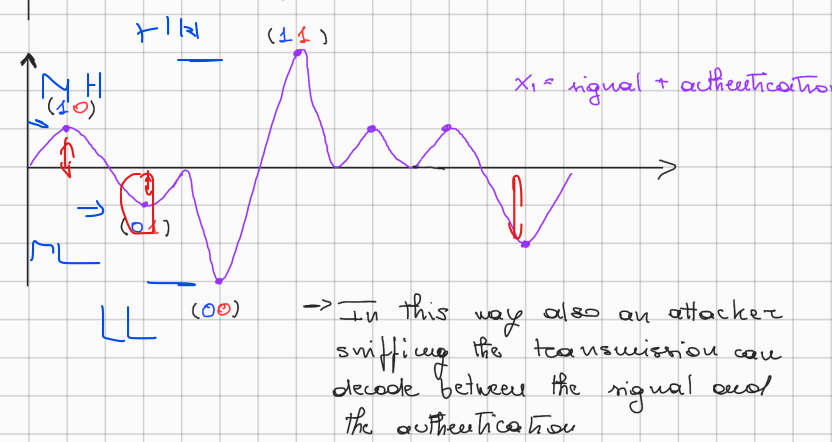 HH
(11)
x₁ = signal + authenticatio
NH
(10)
(01)
NL
LL
(00)
-> In this way also an attacker
sniffing the transmission can
decode between the signal and
the authentication